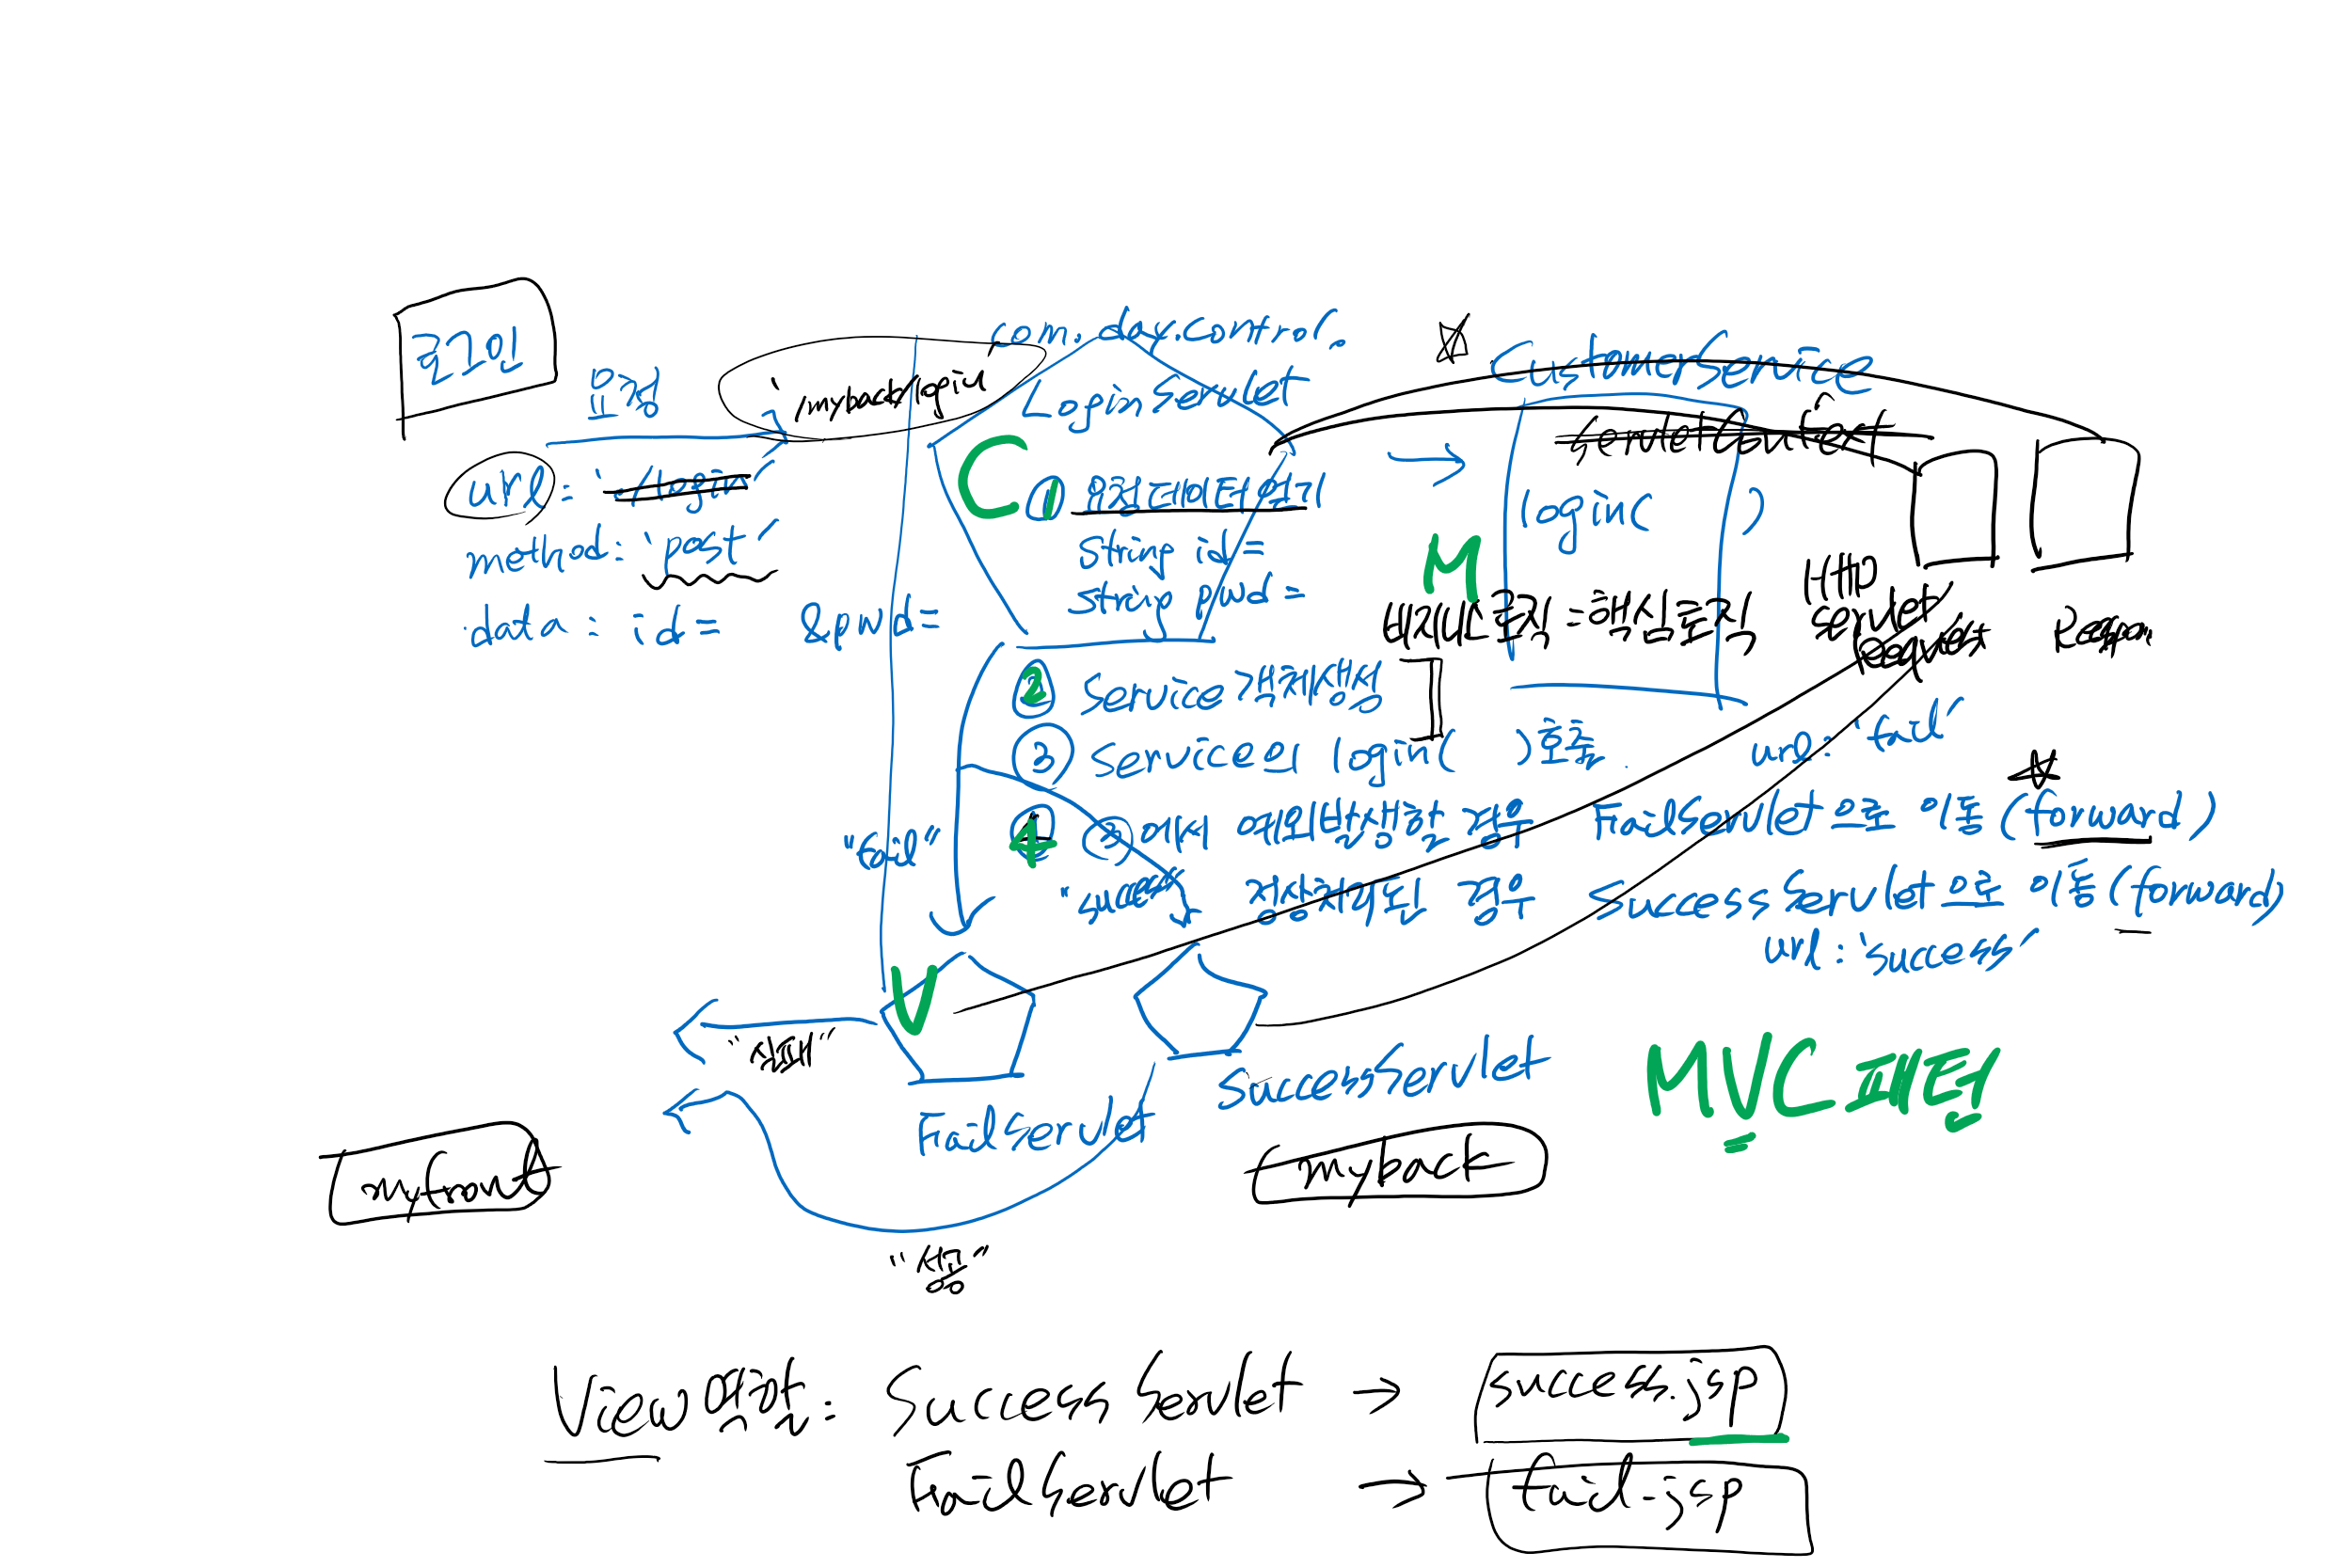 로그인
요청
'/myback/login'
url : './login'
method : 'post'
data : id= &pwd=
com.day.control.
LoginServlet
C
① 요청데이터얻기
String id=
String pwd=
② Service객체생성
③ Service의 login( )호출
④ ③에서 예외발생한 경우 FailServlet으로 이동(forward)
"success" 정상처리된 경우 SuccessServlet으로 이동(forward)
"fail"
url : 'fail'
url : 'success'
CustomerService
ServletContext
login( )
M
비지니스로직=핵심로직
HTTP
Servlet
Request
V
"실패"
FailServlet
SuccessServlet
MVC패턴
myfront
myback
"성공"
View역할 : SuccessServlet → success.jsp
FailServlet → fail.jsp